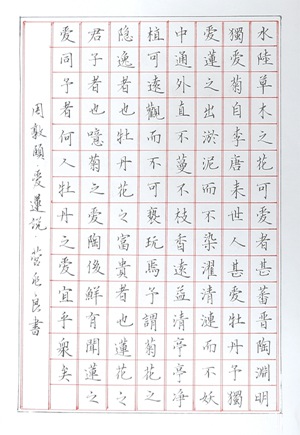 水陸草木之花可愛者甚蕃晉陶淵明
獨愛菊自李唐来世人甚愛牡丹予獨
愛蓮之出淤泥而不染濯清漣而不妖
中通外直不蔓不枝香遠益清亭亭淨
植可遠觀而不可褻玩焉予謂菊花之
隱逸者也牡丹花之富貴者也蓮花之
君子者也噫菊之愛陶後鮮有聞蓮之
愛同予者何人牡丹之愛宜乎衆矣
周敦頤愛蓮說 書